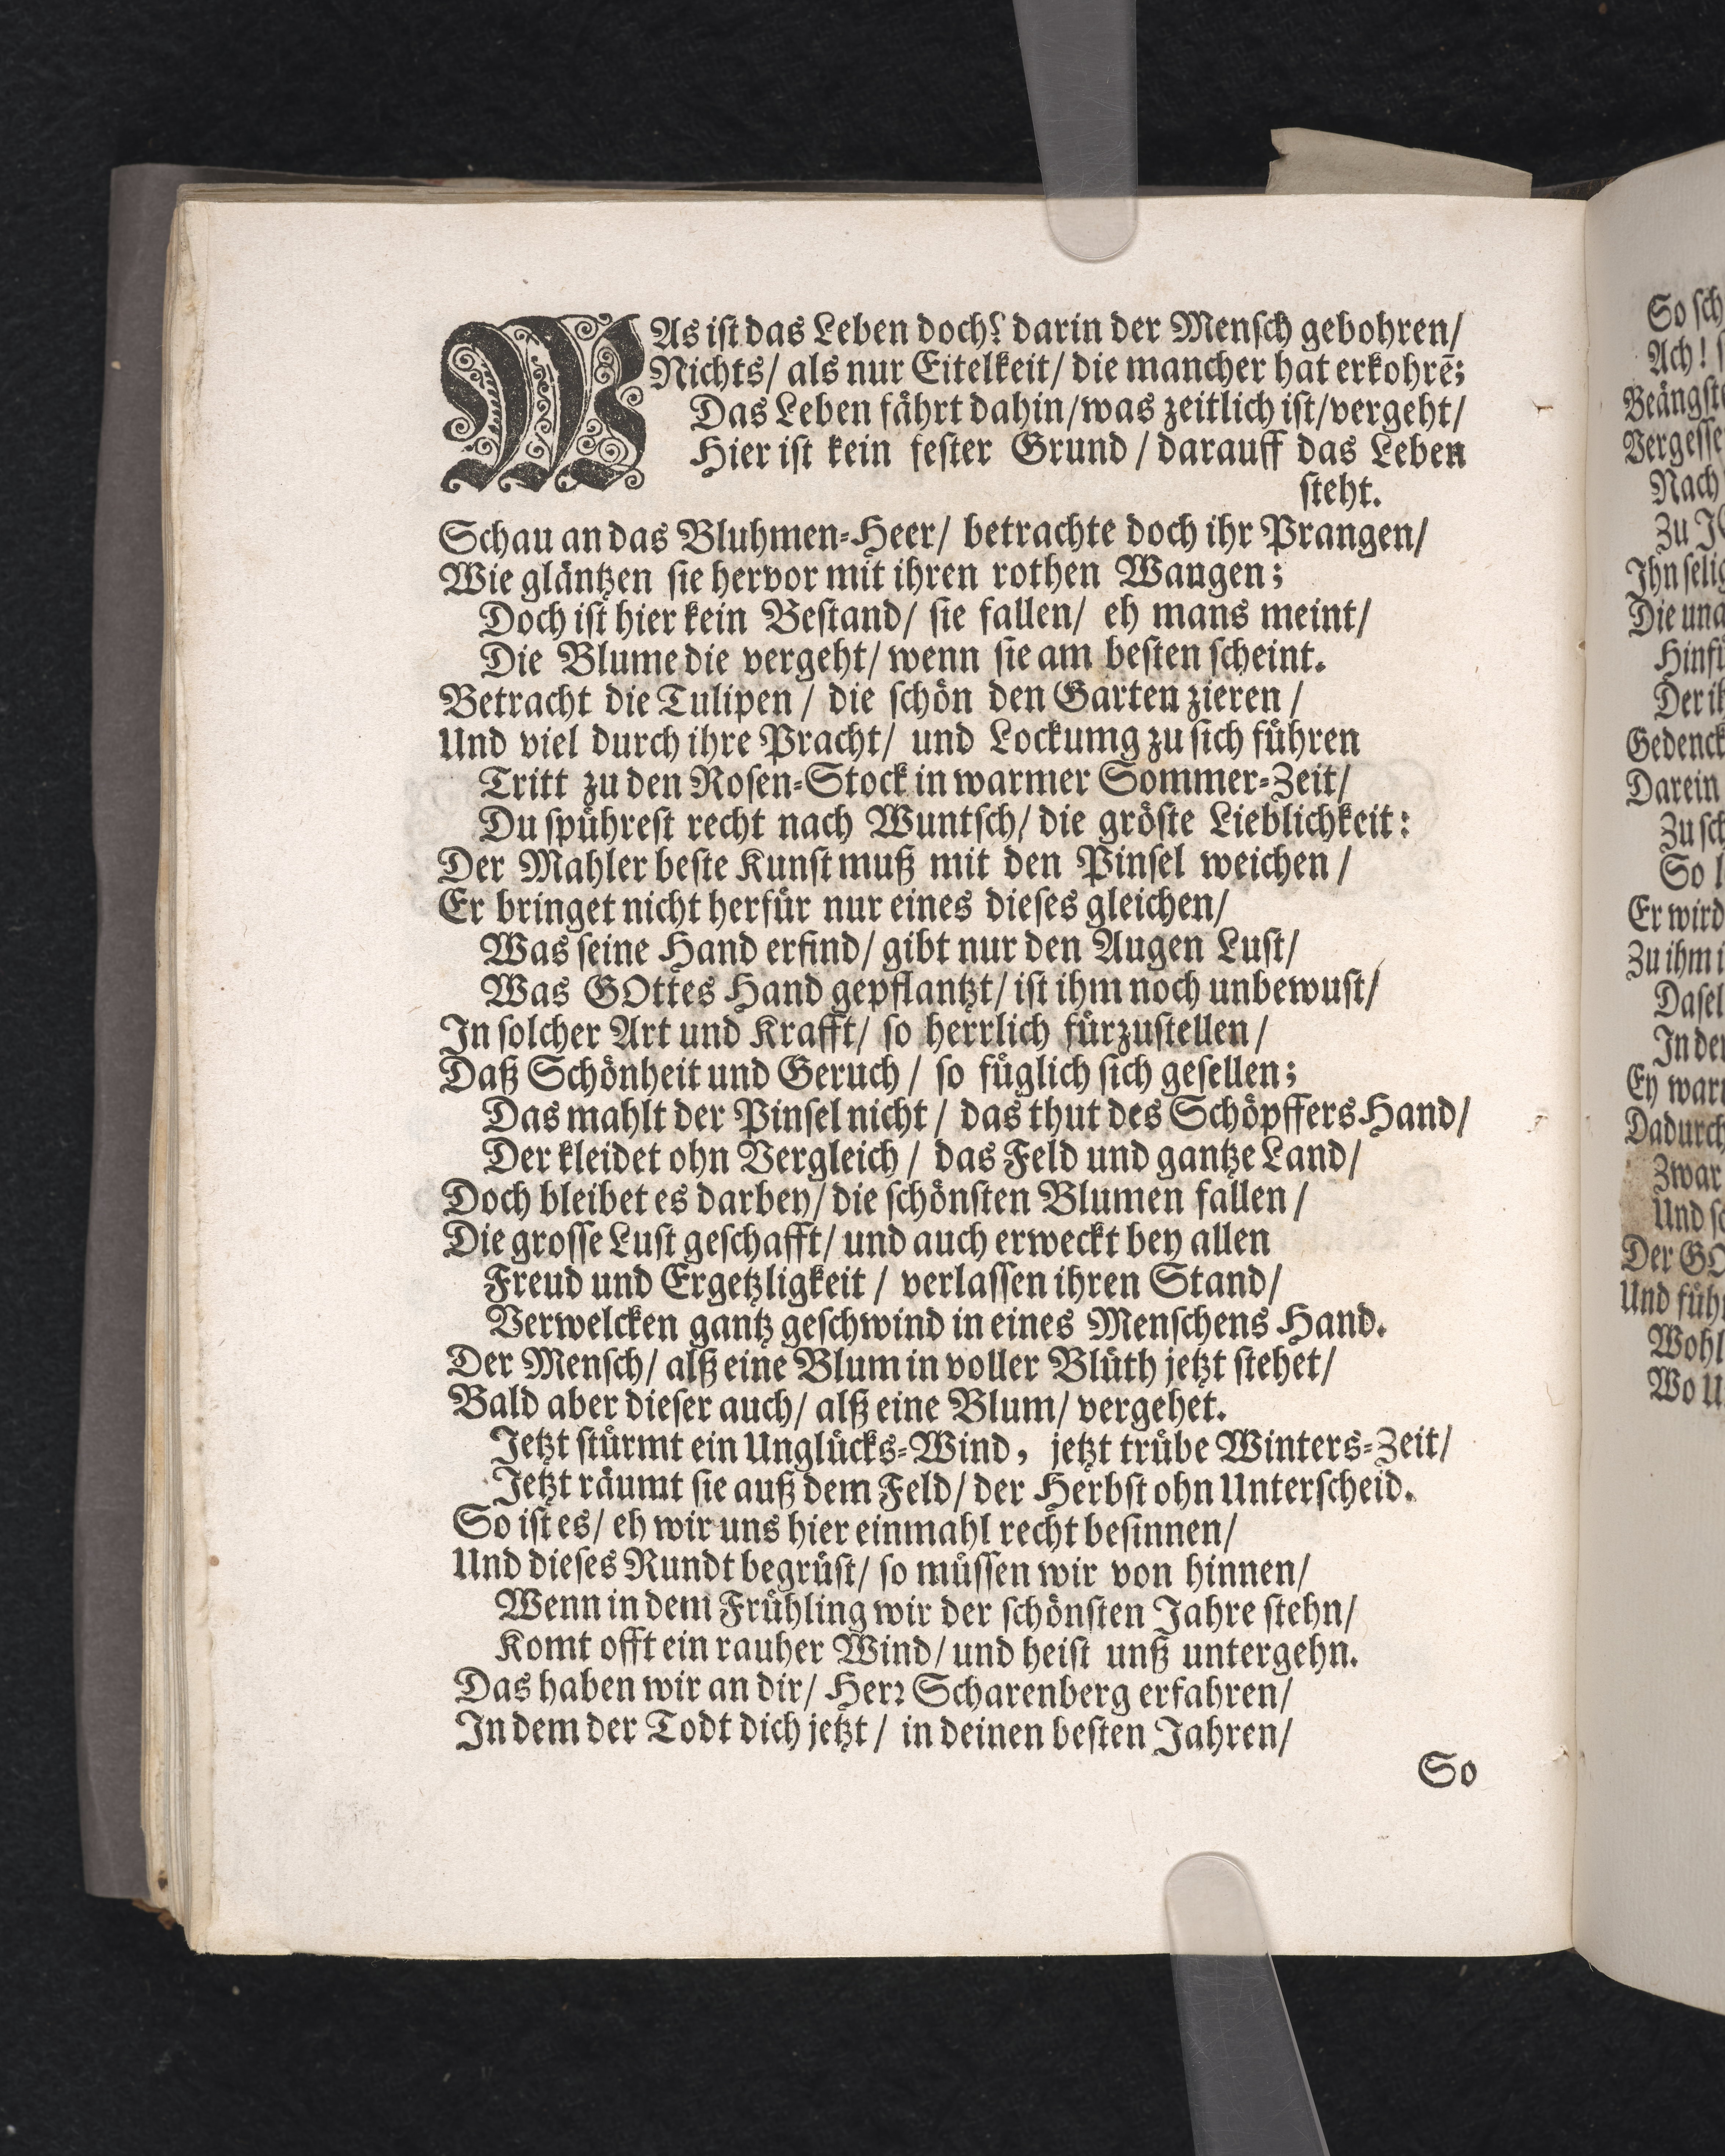 WAs iſt das Leben doch? darin der Menſch gebohren/
Nichts/ als nur Eitelkeit/ die mancher hat erkohrē;
Das Leben fährt dahin/was zeitlich iſt/vergeht/
Hier iſt kein feſter Grund / darauff das Leben
ſteht.
Schau an das Bluhmen-Heer/ betrachte doch ihr Prangen/
Wie gläntzen ſie hervor mit ihren rothen Wangen;
Doch iſt hier kein Beſtand/ ſie fallen/ eh mans meint/
Die Blume die vergeht/ wenn ſie am beſten ſcheint.
Betracht die Tulipen / die ſchön den Garten zieren /
Und viel durch ihre Pracht/ und Lockumg zu ſich führen
Tritt zu den Roſen-Stock in warmer Sommer-Zeit/
Du ſpühreſt recht nach Wuntſch/ die gröſte Lieblichkeit:
Der Mahler beſte Kunſt muß mit den Pinſel weichen /
Er bringet nicht herfür nur eines dieſes gleichen/
Was ſeine Hand erfind/ gibt nur den Augen Luſt/
Was GOttes Hand gepflantzt/ iſt ihm noch unbewuſt/
In ſolcher Art und Krafft/ ſo herrlich fürzuſtellen /
Daß Schönheit und Geruch / ſo füglich ſich geſellen;
Das mahlt der Pinſel nicht / das thut des Schöpffers Hand/
Der kleidet ohn Vergleich / das Feld und gantze Land/
Doch bleibet es darbey/ die ſchönſten Blumen fallen /
Die groſſe Luſt geſchafft/ und auch erweckt bey allen
Freud und Ergetzligkeit / verlaſſen ihren Stand/
Verwelcken gantz geſchwind in eines Menſchens Hand.
Der Menſch/ alß eine Blum in voller Blüth jetzt ſtehet/
Bald aber dieſer auch/ alß eine Blum/ vergehet.
Jetzt ſtürmt ein Unglücks-Wind, jetzt trübe Winters-Zeit/
Jetzt räumt ſie auß dem Feld/ der Herbſt ohn Unterſcheid.
So iſt es/ eh wir uns hier einmahl recht beſinnen/
Und dieſes Rundt begrüſt/ ſo müſſen wir von hinnen/
Wenn in dem Frühling wir der ſchönſten Jahre ſtehn/
Komt offt ein rauher Wind/ und heiſt unß untergehn.
Das haben wir an dir/ Herꝛ Scharenberg erfahren/
In dem der Todt dich jetzt / in deinen beſten Jahren/
So
So
Ach!
Nach
Zu
Die
Gedenck
Darein
Er wird
Zu ihm
Dadurch
Zwar
Und
Und
Wo